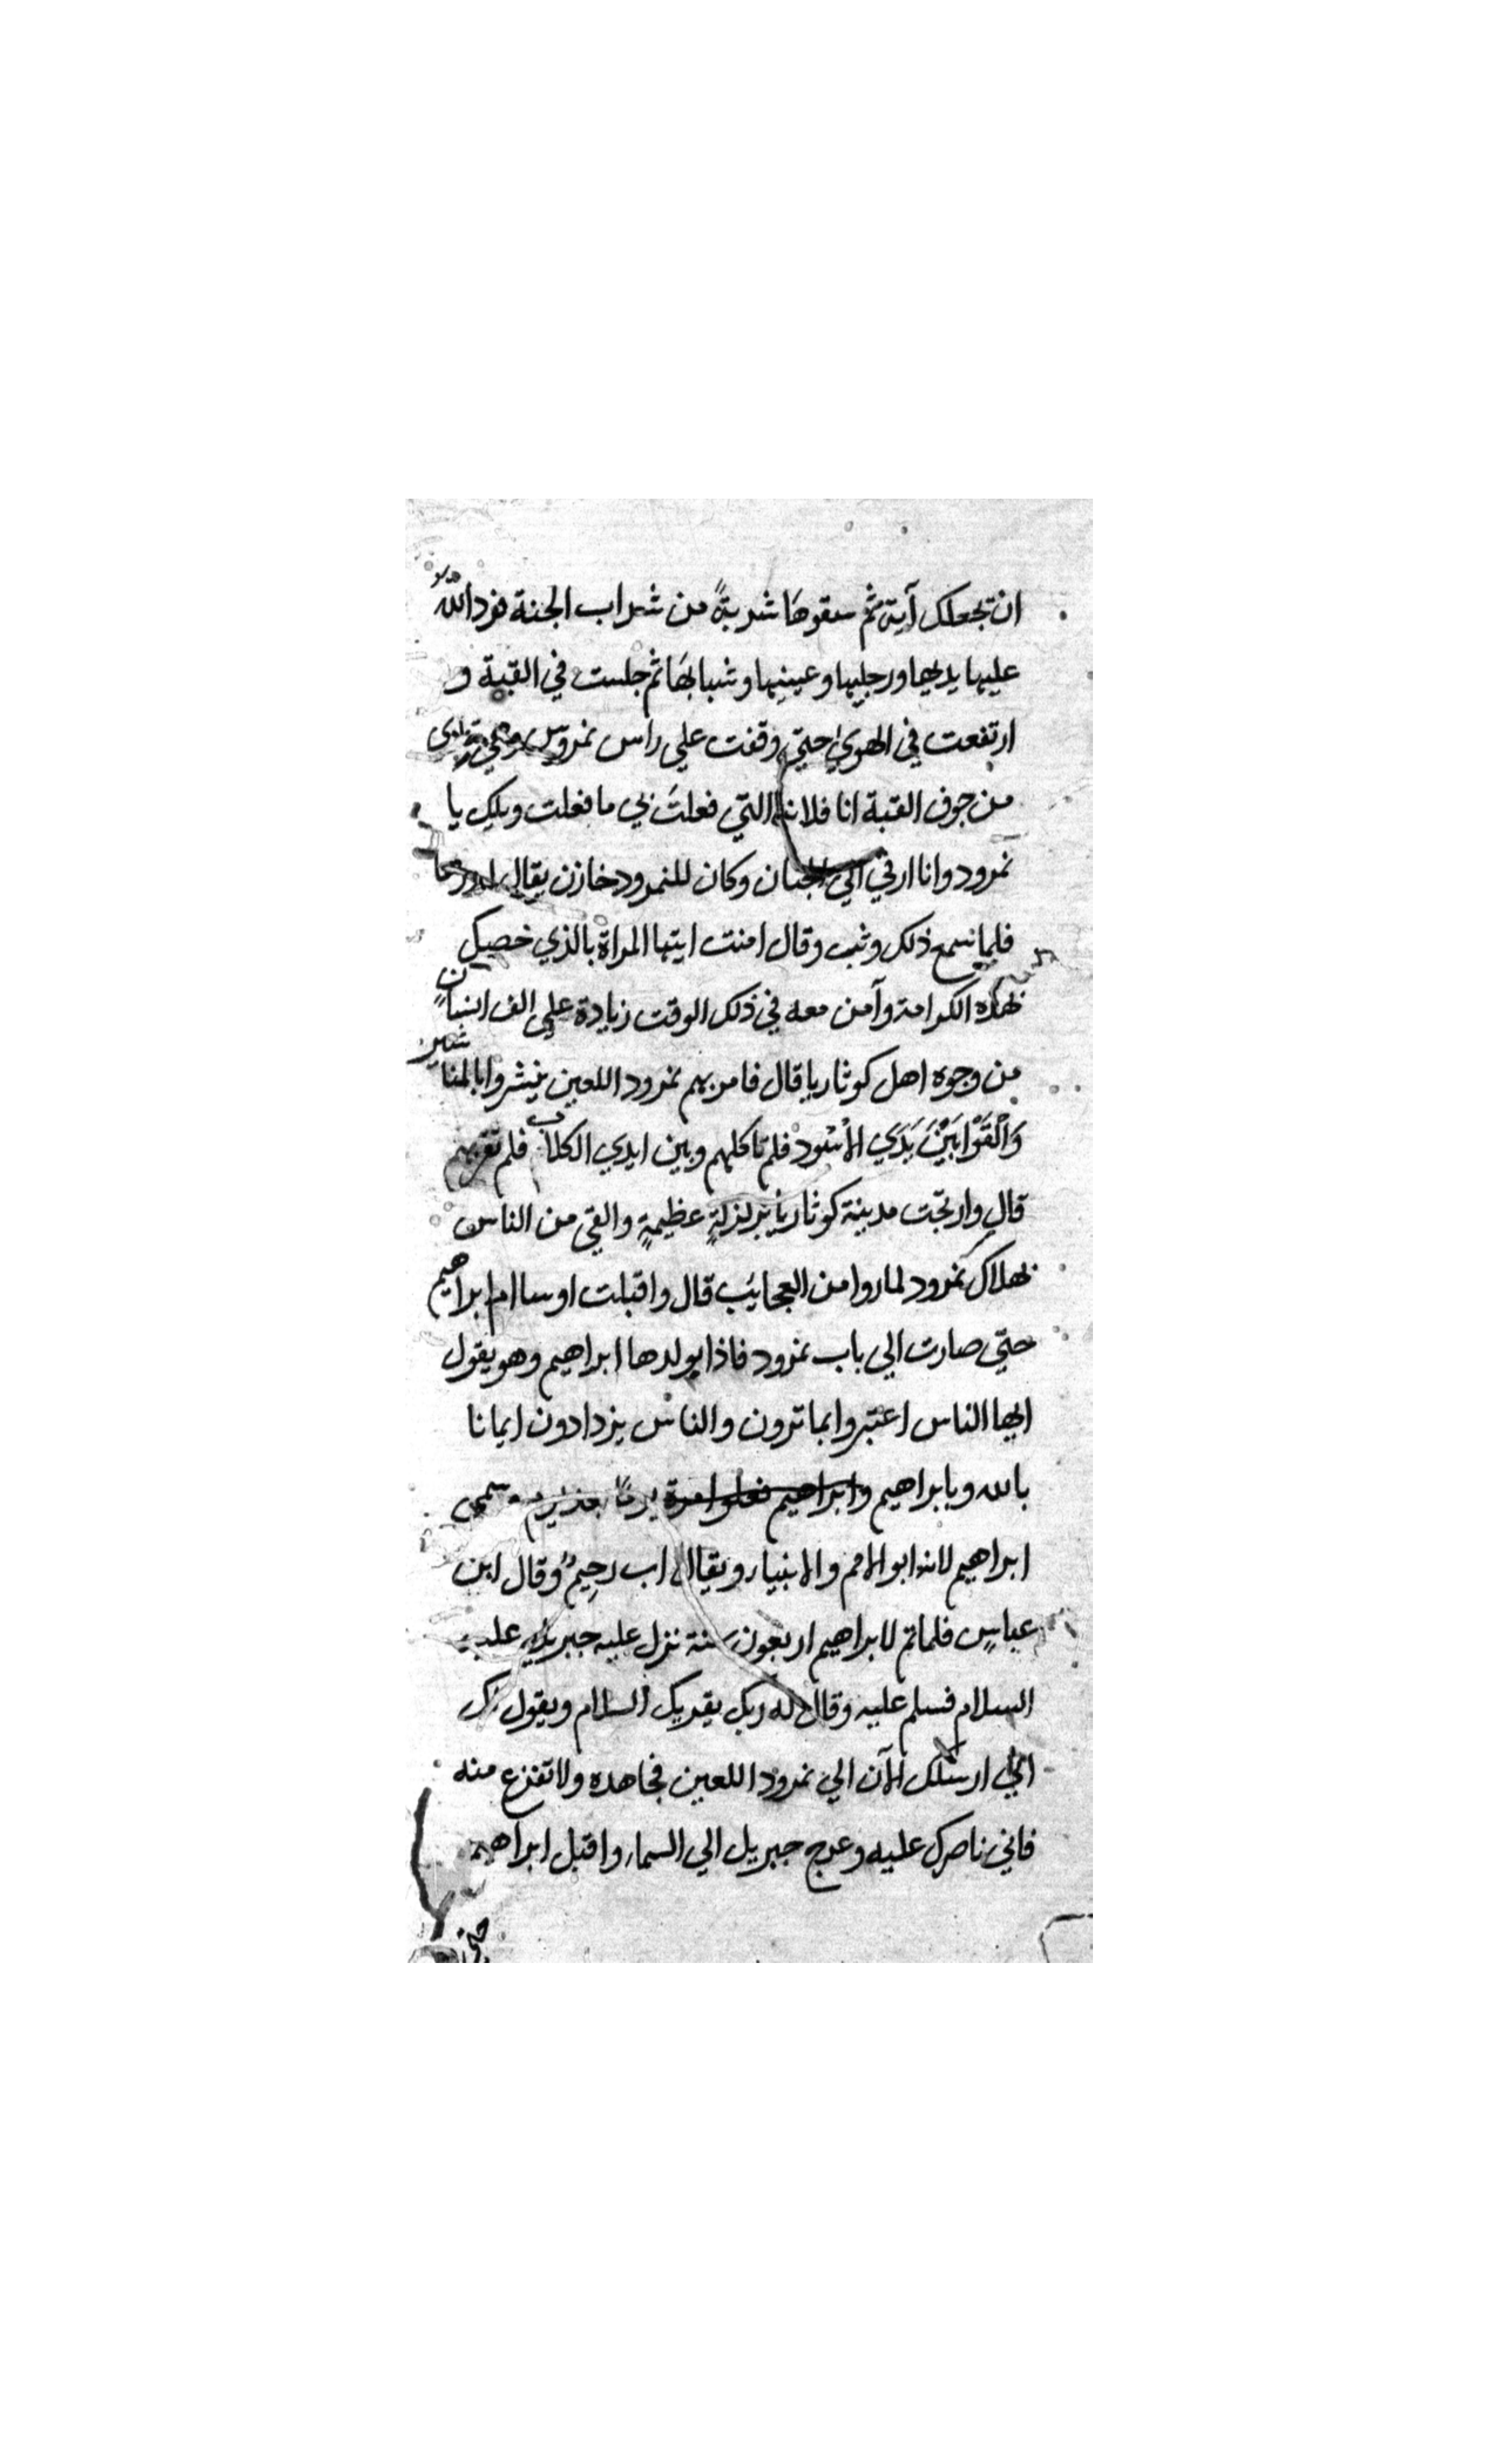 ان تجعلك آية ثم سقوها شربةً من شراب الجنة فرد الله
عليها يديها ورجليها وعينيها وشبابها ثم جلست في القبة و
ارتفعت في الهوي حتي وقفت علي راس نمرود وهي تنادي
من جوف القبة انا فلانة التي فعلتَ بي ما فعلت ويلك يا
نمرود وانا ارقي الي الجنان وكان للنمرود خازن يقال له
فلما سمع ذلك وثب وقال امنت ايتها المراة بالذي خصك
بهذه الكرامة وآمن معه في ذلك الوقت زيادة علي الف انسان
من وجوه اهل كوثاريا قال فامر بهم نمرود اللعين ينشروا بالمناشير
وَاُلْقَوْا بَيْنَ يَدَي الاُسُود فلم تاكلهم وبين ايدي الكلاب فلم تقربهم
قال وارتجّت مدينة كوثاريا بزلزلةٍ عظيمةٍ والقي من الناس
بهلاك نمرود لما روا من العجايَب قال واقبلت اوسا ام ابراهيم
حتّي صارت الي باب نمرود فاذا بولدها ابراهيم وهو يقول
ايها الناس اعتبروا بما ترون والناس يزدادون ايمانا
بالله وبابراهيم وابراهيم وسمي
ابراهيم لانه ابو الامم والانبياء ويقال اب رحِيمٌ وقال ابن
عباسٍ فلما تم لابراهيم اربعون سَنة نزل عليه جبريل عليه
السلام فسلم عليه وقال له ربك يقريك السلام ويقول لك
انّي ارسلك الآن الي نمرود اللعين فجاهده ولا تفزع منه
فاني ناصرك عليه وعرج جبريل الي السماء واقبل ابراهيم
حتي